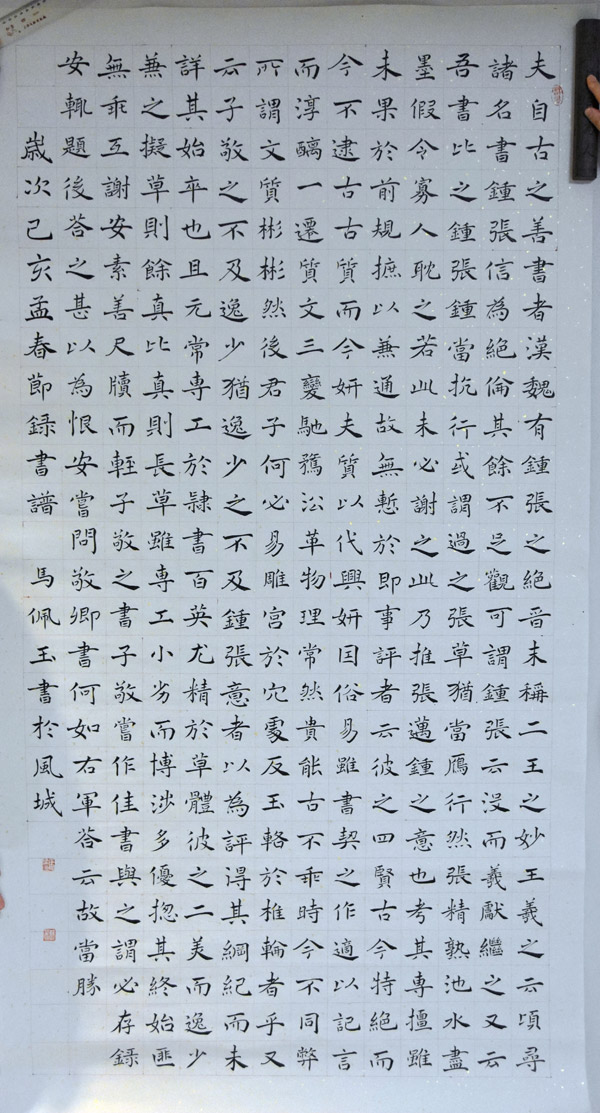 夫自古之善書者漢魏有鍾張之絕晉末稱二王之妙王羲之云頃尋
諸名書鍾張信為絕倫其餘不足觀可謂鍾張云沒而羲獻繼之又云
吾書比之鍾張鍾當抗行或謂過之張草猶當鴈行然張精熟池水盡
墨假令寡人耽之若此未必謝之此乃推張邁鍾之意也考其專擅雖
未果於前規摭以兼通故無慙於即事評者云彼之四賢古今特絕而
今不逮古古質而今妍夫質以代興妍因俗易雖書契之作適以記言
而淳醨一遷質文三變馳鶩沿革物理常然貴能古不乖時今不同弊
所謂文質彬彬然後君子何必易雕宮於穴處反玉輅於椎輪者乎又
云子敬之不及逸少猶逸少之不及鍾張意者以為評得其綱紀而未
詳其始卒也且元常專工於隸書百英尤精於草體彼之二美而逸少
兼之擬草則餘真比真則長草雖專工小劣而博涉多優揔其終始匪
無乖互謝安素善尺牘而輕子敬之書子敬嘗作佳書與之謂必存錄
安輒題後荅之甚以為恨安嘗問敬卿書何如右軍荅云故當勝
歲次己亥孟春節錄書譜 馬佩玉書於風城